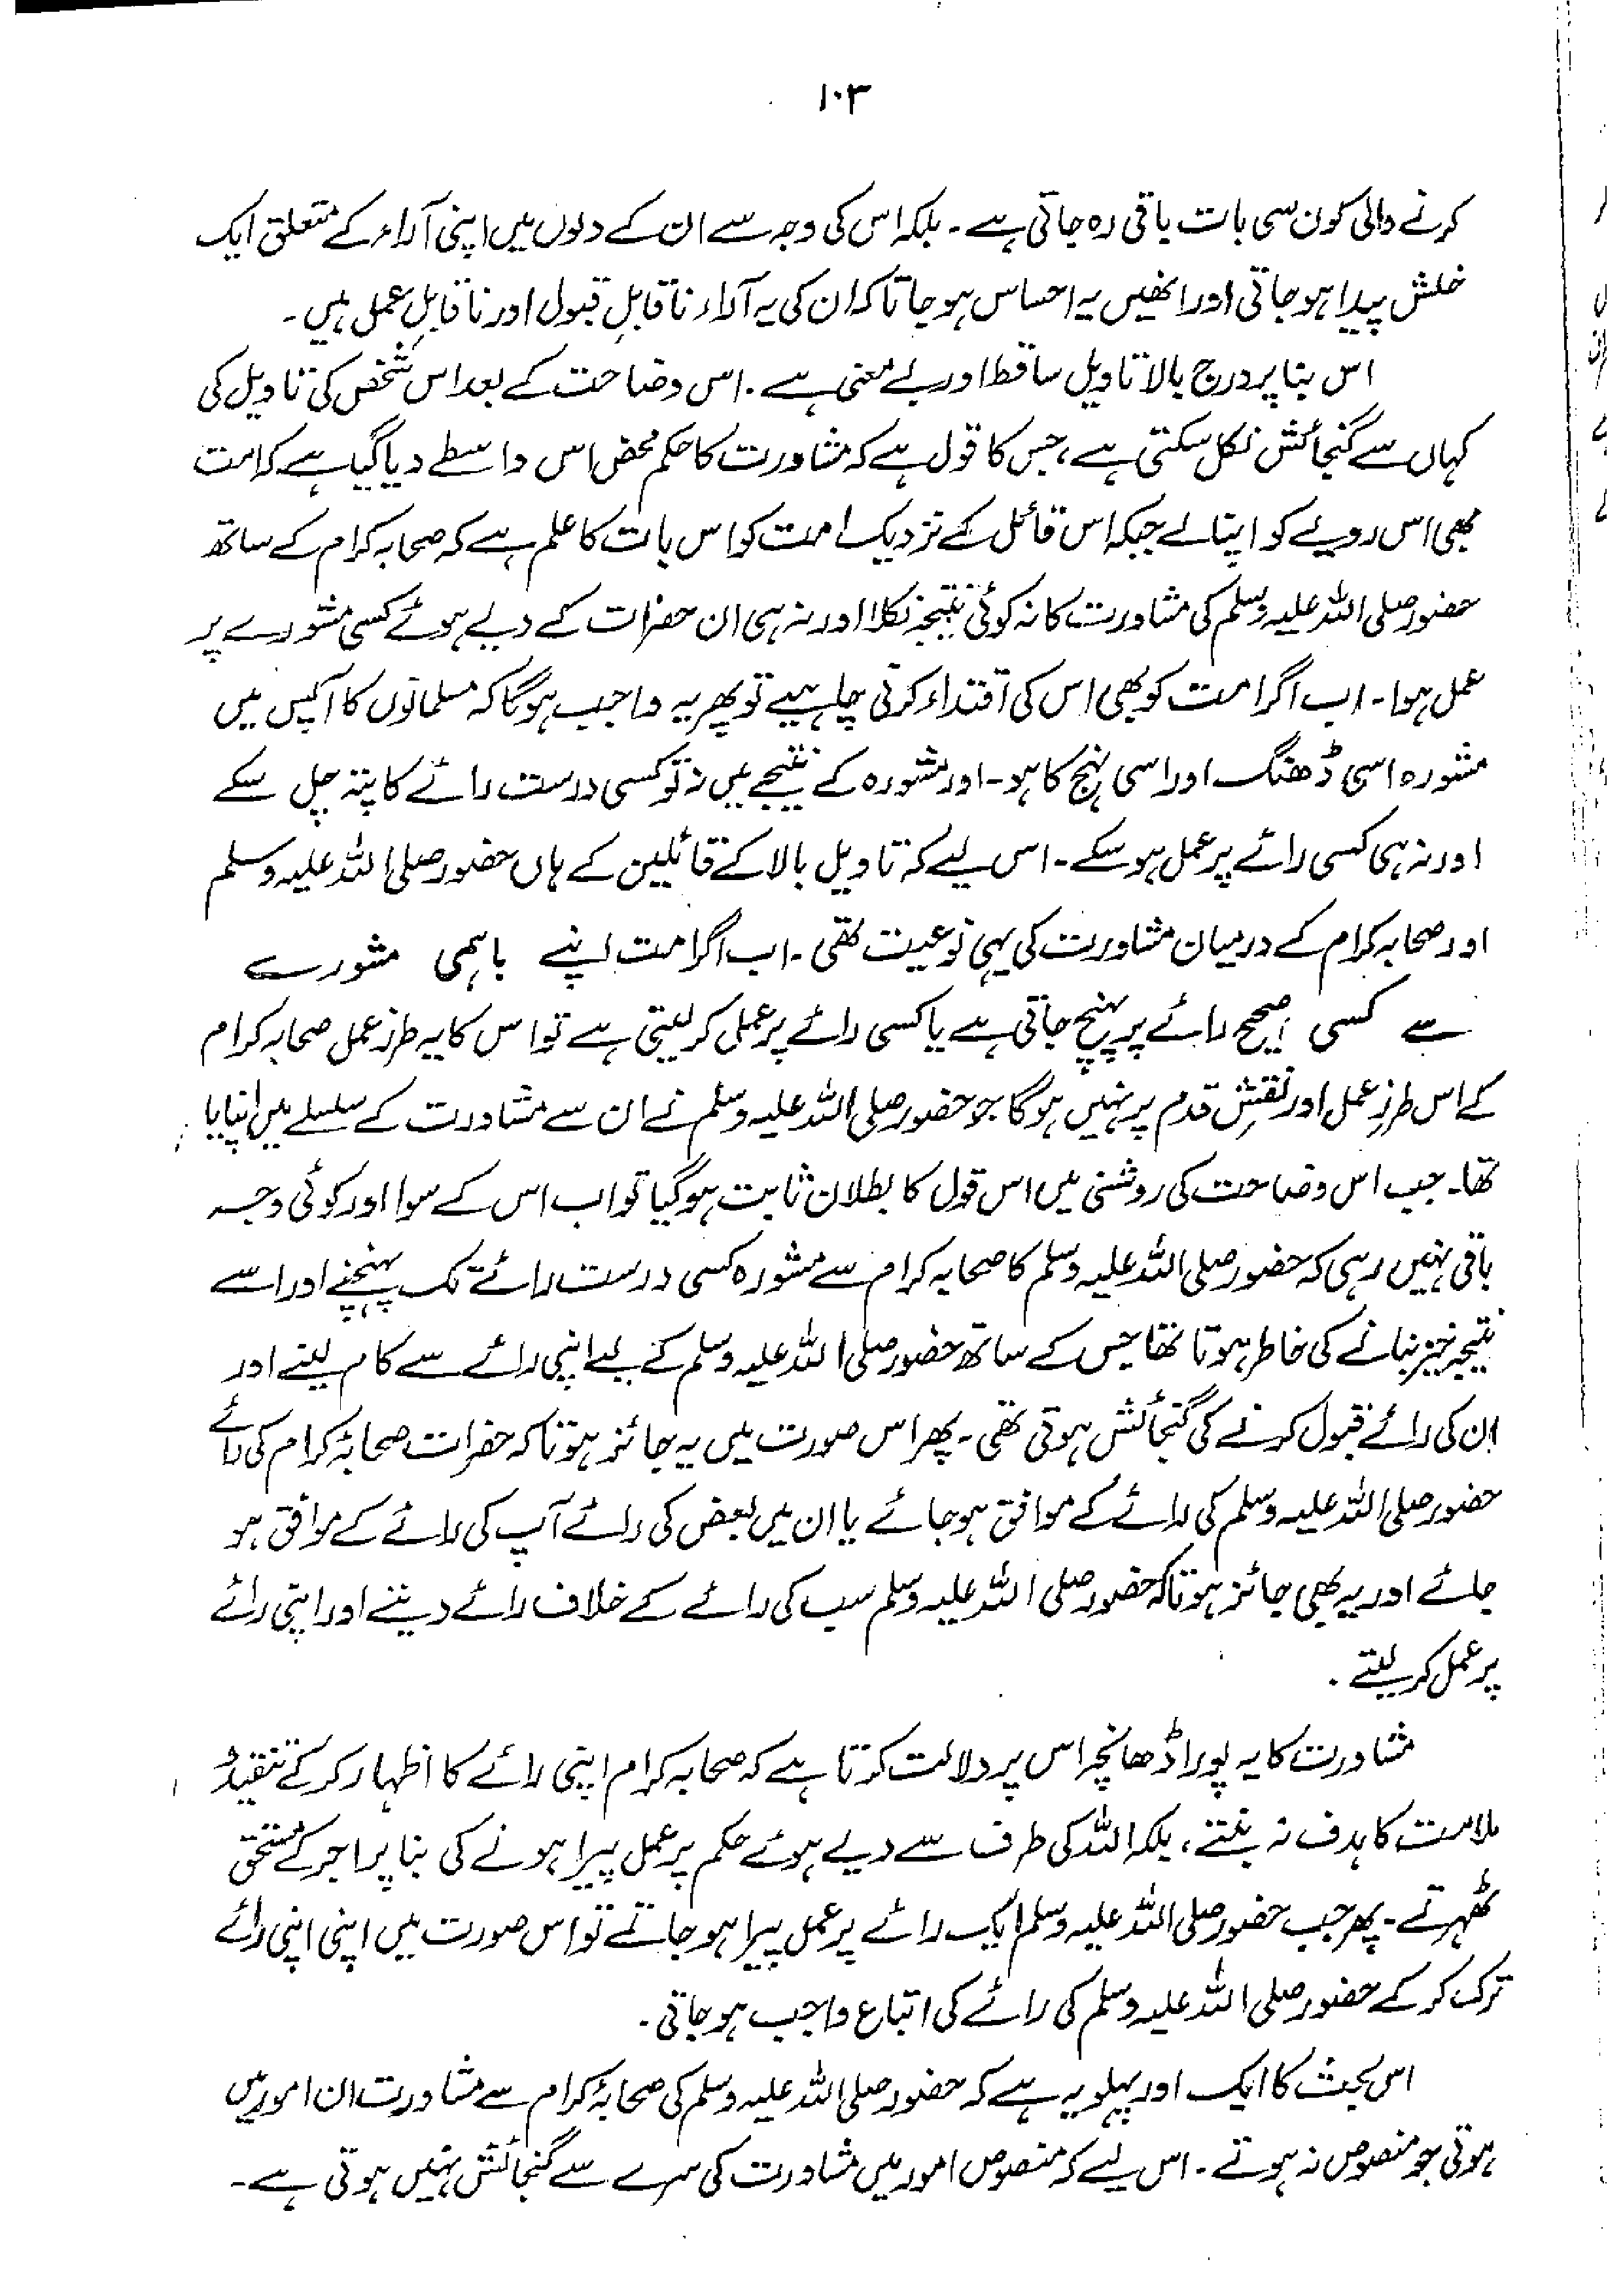 ۱۰۳
کرنے والی کون سی بات باقی رہ جاتی ہے۔ بلکہ اس کی وجہ سے ان کے دلوں میں اپنی آراء کے متعلق ایک
خلش پیدا ہو جاتی اور انھیں یہ احساس ہو جاتا کہ ان کی یہ آراء ناقابلِ قبول اور ناقابلِ عمل ہیں۔
اس بنا پر درج بالا تاویل ساقط اور بے معنی ہے۔ اس وضاحت کے بعد اس شخص کی تاویل کی
کہاں سے گنجائش نکل سکتی ہے، جس کا قول ہے کہ مشاورت کا حکم محض اس واسطے دیا گیا ہے کہ امت
بھی اس رویے کو اپنا لے جبکہ اس قائل کے نزدیک امت کو اس بات کا علم ہے کہ صحابہ کرام کے ساتھ
حضور صلی اللہ علیہ وسلم کی مشاورت کا نہ کوئی نتیجہ نکلا اور نہ ہی ان حضرات کے دیے ہوئے کسی مشورے پر
عمل ہوا۔ اب اگر امت کو بھی اس کی اقتداء کرنی چاہیے تو پھر یہ واجب ہوگا کہ مسلمانوں کا آپس میں
مشورہ اسی ڈھنگ اور اسی نہج کا ہو۔ اور مشورہ کے نتیجے میں نہ تو کسی درست رائے کا پتہ چل سکے
اور نہ ہی کسی رائے پر عمل ہو سکے۔ اس لیے کہ تاویل بالا کے قائلین کے ہاں حضور صلی اللہ علیہ وسلم
اور صحابہ کرام کے درمیان مشاورت کی یہی نوعیت تھی۔ اب اگر امت اپنے باہمی مشورے
سے کسی صحیح رائے پر پہنچ جاتی ہے یا کسی رائے پر عمل کر لیتی ہے تو اس کا یہ طرز عمل صحابہ کرام
کے اس طرزِ عمل اور نقشِ قدم پر نہیں ہوگا جو حضور صلی اللہ علیہ وسلم نے ان سے مشاورت کے سلسلے میں اپنایا
تھا۔ جب اس وضاحت کی روشنی میں اس قول کا بطلان ثابت ہوگیا تو اب اس کے سوا اور کوئی وجہ
باقی نہیں رہی کہ حضور صلی اللہ علیہ وسلم کا صحابہ کرام سے مشورہ کسی درست رائے تک پہنچنے اور اسے
نتیجہ خیز بنانے کی خاطر ہوتا تھا جس کے ساتھ حضور صلی اللہ علیہ وسلم کے لیے اپنی رائے سے کام لینے اور
ان کی رائے قبول کرنے کی گنجائش ہوتی تھی۔ پھر اس صورت میں یہ جائز ہوتا کہ حضرات صحابۂ کرام کی رائے
حضور صلی اللہ علیہ وسلم کی رائے کے موافق ہو جائے یا ان میں بعض کی رائے آپ کی رائے کے موافق ہو
جائے اور یہ بھی جائز ہوتا کہ حضور صلی اللہ علیہ وسلم سب کی رائے کے خلاف رائے دیتے اور اپنی رائے
پر عمل کر لیتے۔
مشاورت کا یہ پورا ڈھانچہ اس پر دلالت کرتا ہے کہ صحابہ کرام اپنی رائے کا اظہار کر کے تنقید و
ملامت کا ہدف نہ بنتے، بلکہ اللہ کی طرف سے دیے ہوئے حکم پر عمل پیرا ہونے کی بنا پر اجر کے مستحق
ٹھہرتے۔ پھر جب حضور صلی اللہ علیہ وسلم ایک رائے پر عمل پیرا ہو جاتے تو اس صورت میں اپنی اپنی رائے
ترک کر کے حضور صلی اللہ علیہ وسلم کی رائے کی اتباع واجب ہو جاتی۔
اس بحث کا ایک اور پہلو یہ ہے کہ حضور صلی اللہ علیہ وسلم کی صحابۂ کرام سے مشاورت ان امور میں
ہوتی جو منصوص نہ ہوتے۔ اس لیے کہ منصوص امور میں مشاورت کی سرے سے گنجائش نہیں ہوتی ہے۔